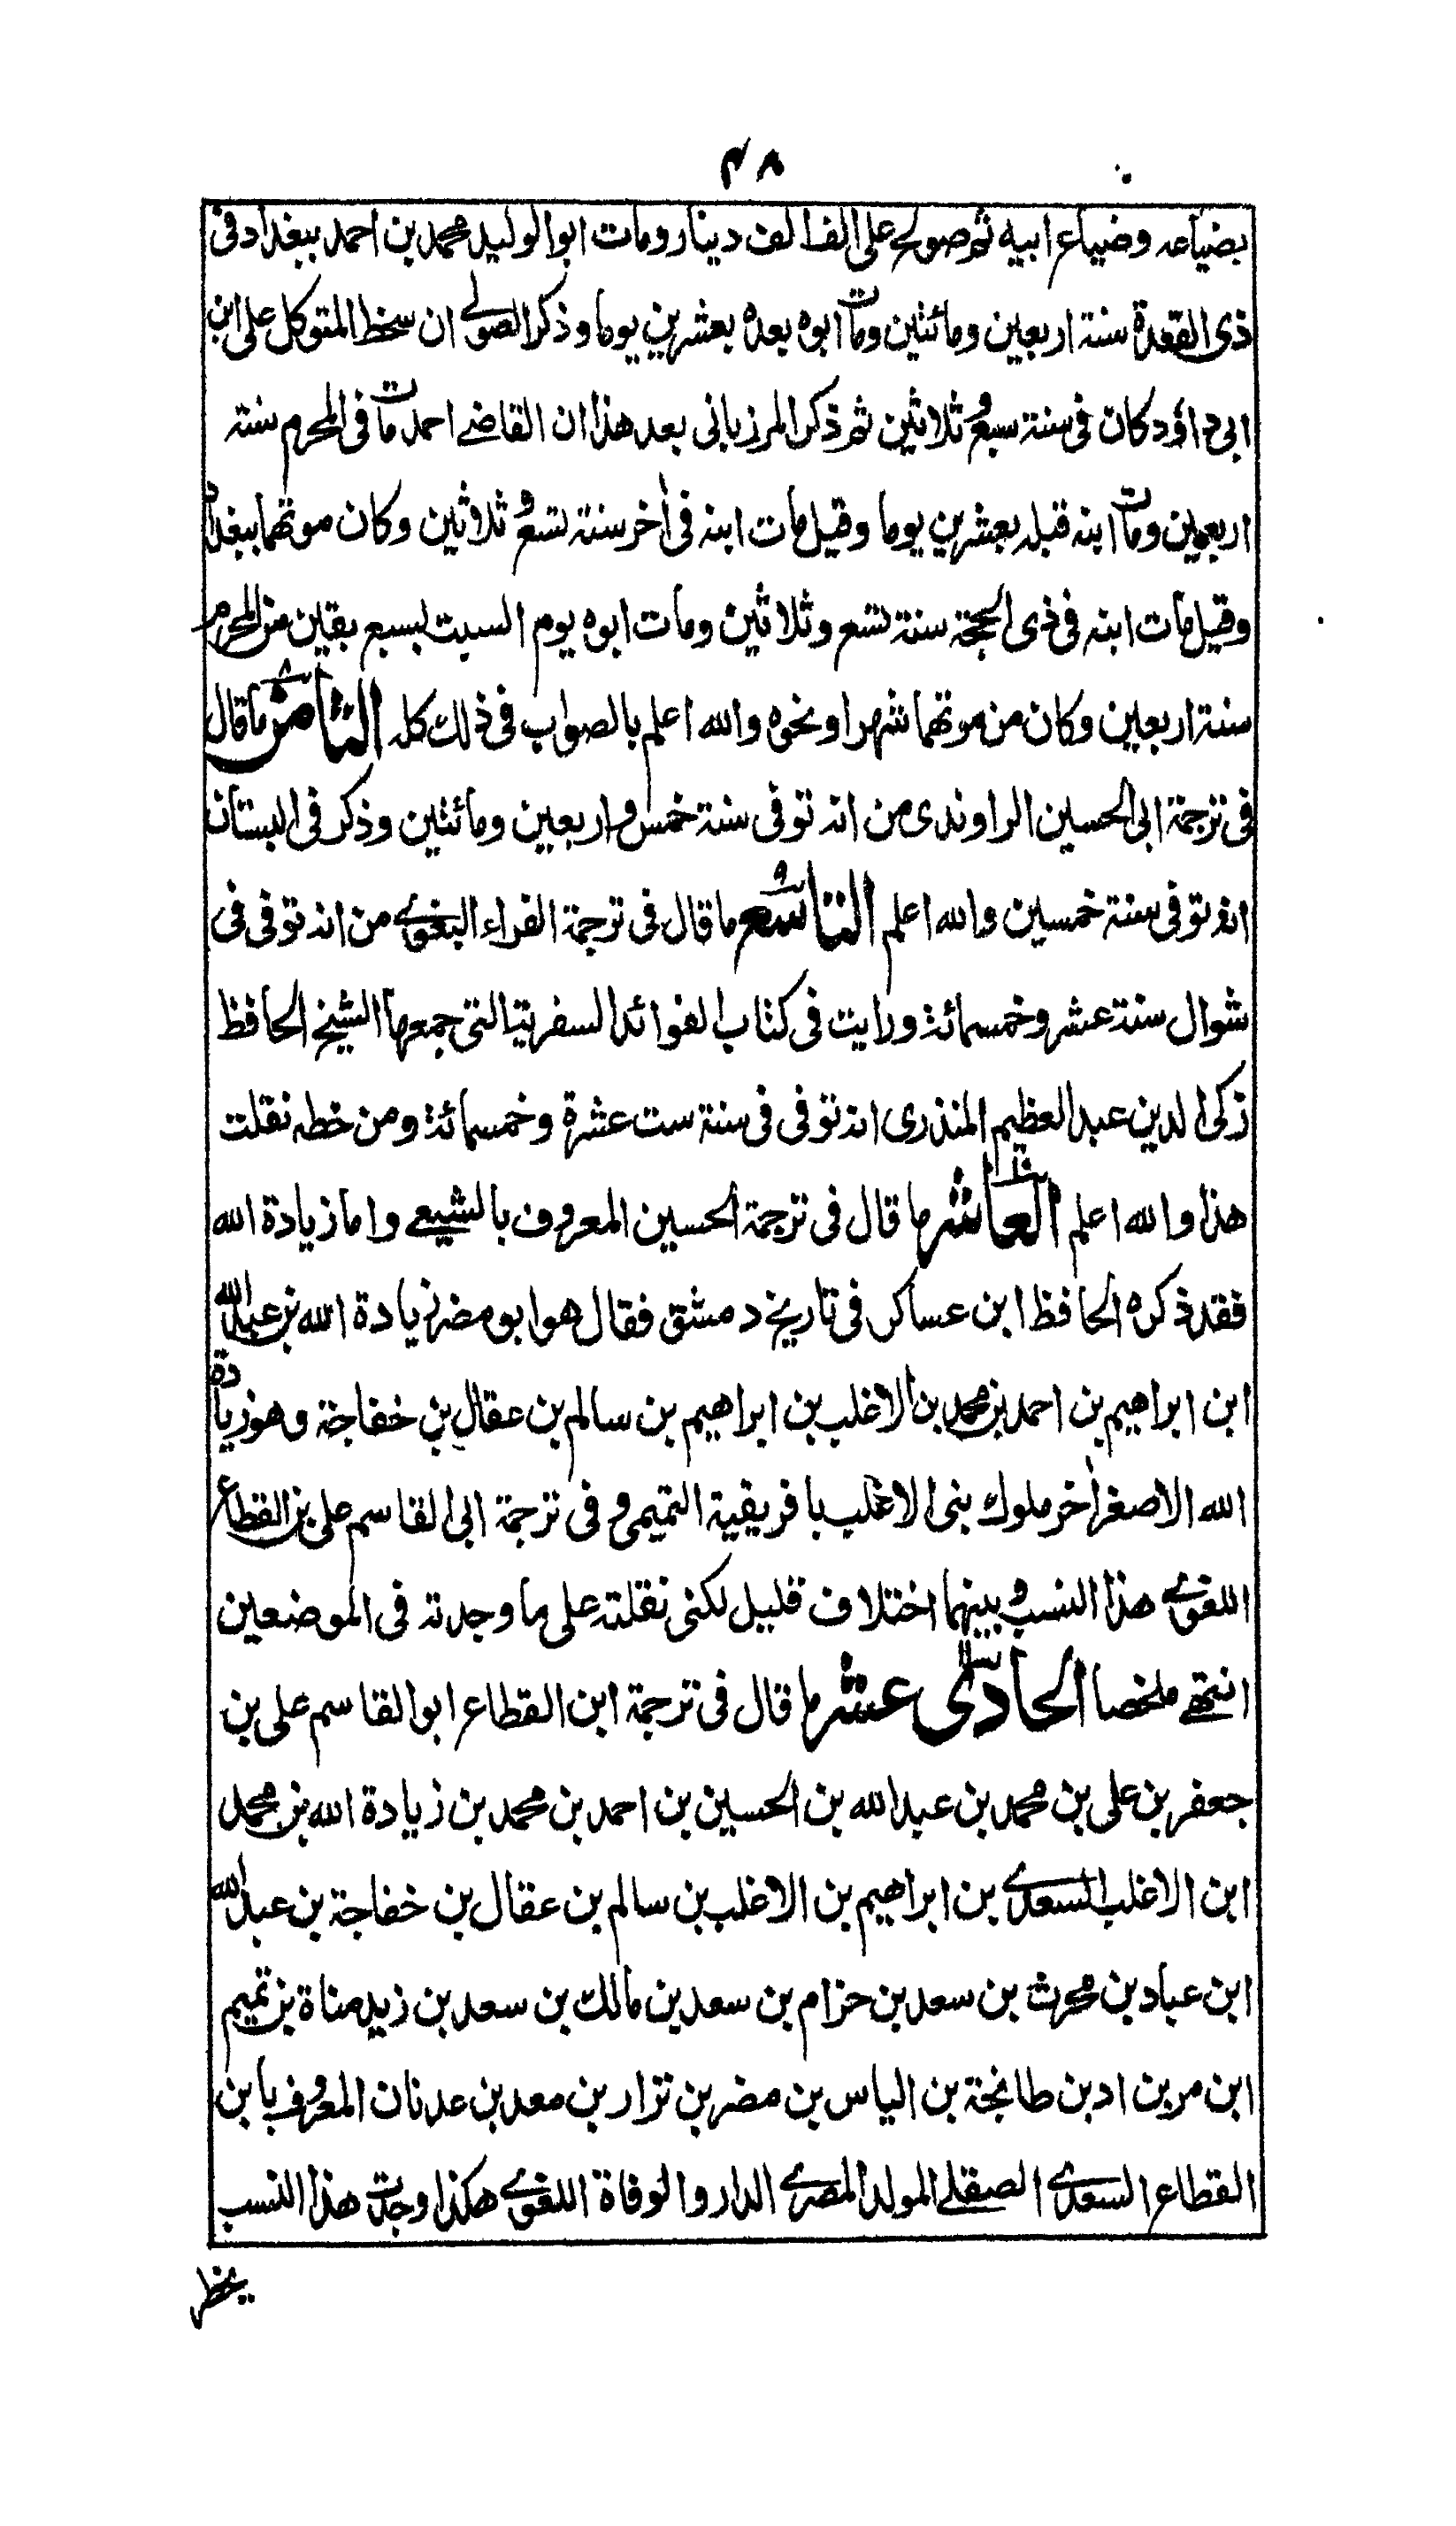 ٤٨
بضياعه وضياع ابيه ثم صولح على الف الف دينار ومات ابوالوليد محمد بن احمد ببغداد فى
ذى القعدة سنة اربعين ومائتين ومات ابوه بعده بعشرين يوما وذكر الصولى ان سخط المتوكل على ابن
ابى داؤد كان فى سنة سبع وثلاثين ثم ذكر المرزبانى بعد هذا ان القاضى احمد مات فى المحرم سنة
اربعين ومات ابنه قبله بعشرين يوما وقيل مات ابنه فى اٰخر سنة تسع وثلاثين وكان موتهما ببغداد
وقيل مات ابنه فى ذى الحجة سنة تسع وثلاثين ومات ابوه يوم السبت لسبع بقين من المحرم
سنة اربعين وكان من موتهما شهر او نحوه والله اعلم بالصواب فى ذلك كله الثامن ٨ ما قال
فى ترجمة ابى الحسين الراوندى من انه توفى سنة خمس واربعين ومائتين وذكر فى البستان
انه توفى سنة خمسين والله اعلم التاسع ٩ ما قال فى ترجمة الفراء البغوى من انه توفى فى
شوال سنة عشر وخمسمائة ورايت فى كتاب الفوائد السفرية التى جمعها الشيخ الحافظ
زكى الدين عبد العظيم المنذرى انه توفى فى سنة ست عشرة وخمسمائة ومن خطه نقلت
هذا والله اعلم العاشر ١٠ ما قال فى ترجمة الحسين المعروف بالشيعى واما زيادة الله
فقد ذكره الحافظ ابن عساكر فى تاريخ دمشق فقال هو ابو مضر زيادة الله بن عبد الله
ابن ابراهيم بن احمد بن محمد بن الاغلب بن ابراهيم بن سالم بن عقال بن خفاجة وهو زيادة
الله الاصغر اٰخر ملوك بنى الاغلب بافريقية التميمى وفى ترجمة ابى القاسم على بن القطاع
اللغوى هذا النسب وبينهما اختلاف قليل لكنى نقلته على ما وجدته فى الموضعين
انتهى ملخصا الحادى عشر ١١ ما قال فى ترجمة ابن القطاع ابو القاسم على بن
جعفر بن على بن محمد بن عبد الله بن الحسين بن احمد بن محمد بن زيادة الله بن محمد
ابن الاغلب السعدى بن ابراهيم بن الاغلب بن سالم بن عقال بن خفاجة بن عبد الله
ابن عباد بن محرث بن سعد بن حزام بن سعد بن مالك بن سعد بن زيد مناة بن تميم
ابن مر بن اد بن طابخة بن الياس بن مضر بن نزار بن معد بن عدنان المعروف بابن
القطاع السعدى الصقلى المولد المصرى الدار والوفاة اللغوى هكذا وجدت هذا النسب
بخط